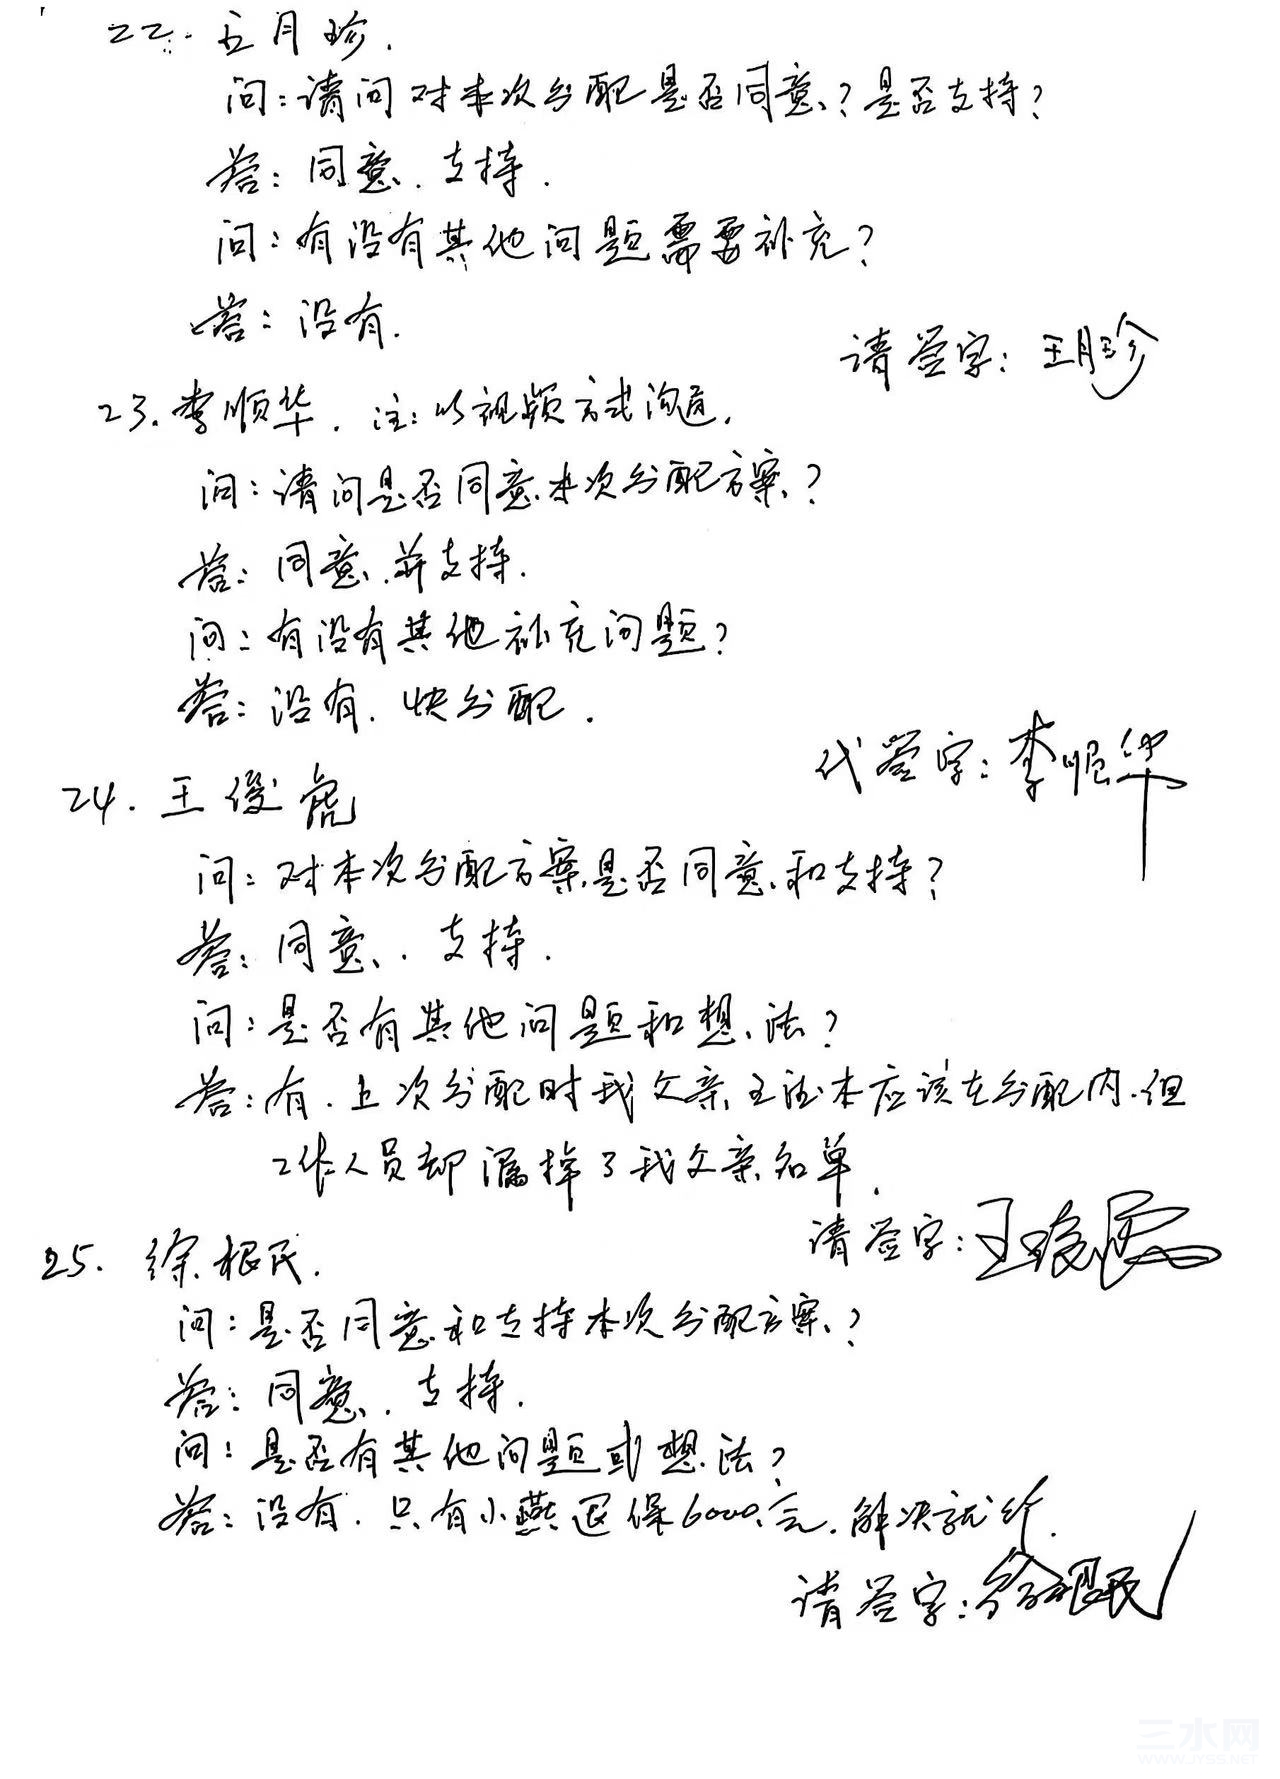 22. 王月珍.
问:请问对本次分配是否同意?是否支持?
答:同意.支持.
问:有没有其他问题需要补充?
答:没有.
请签字:王月珍
23.李顺华. 注:以视频方式沟通.
问:请问是否同意本次分配方案?
答:同意.并支持.
问:有没有其他补充问题?
答:没有.快分配.
代签字:李顺华
24.王俊虎
问:对本次分配方案是否同意和支持?
答:同意.支持.
问:是否有其他问题和想法?
答:有.上次分配时我父亲王 本应该在分配内.但
工作人员却漏掉了我父亲名单.
请签字:王俊虎
25. 徐根民.
问:是否同意和支持本次分配方案?
答:同意.支持.
问:是否有其他问题或想法?
答:没有.只有小燕退保6000元.解决就行.
请签字:徐根民
三水网
WWW.JYSS.NET